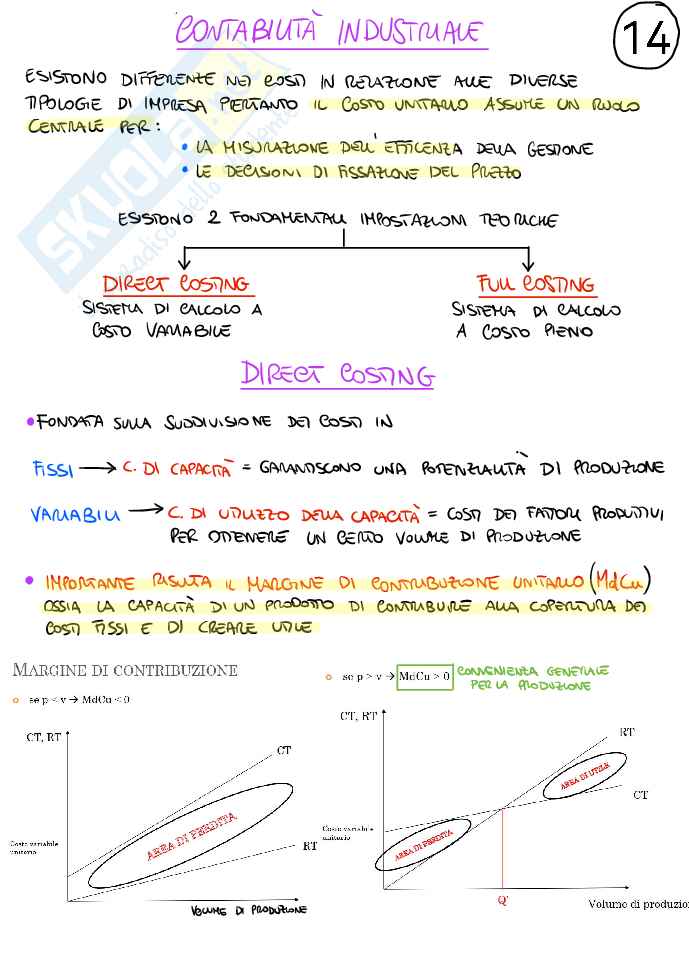 CONTABILITÀ INDUSTRIALE
14
ESISTONO DIFFERENZE NEI COSTI IN RELAZIONE ALLE DIVERSE
TIPOLOGIE DI IMPRESA PERTANTO IL COSTO UNITARIO ASSUME UN RUOLO
CENTRALE PER:
• LA MISURAZIONE DELL'EFFICENZA DELLA GESTIONE
• LE DECISIONI DI FISSAZIONE DEL PREZZO
ESISTONO 2 FONDAMENTALI IMPOSTAZIONI TEORICHE
DIRECT COSTING
SISTEMA DI CALCOLO A
COSTO VARIABILE
FULL COSTING
SISTEMA DI CALCOLO
A COSTO PIENO
DIRECT COSTING
• FONDATA SULLA SUDDIVISIONE DEI COSTI IN
FISSI → C. DI CAPACITÀ = GARANTISCONO UNA POTENZIALITÀ DI PRODUZIONE
VARIABILI → C. DI UTILIZZO DELLA CAPACITÀ = COSTI DEI FATTORI PRODUTTIVI
PER OTTENERE UN CERTO VOLUME DI PRODUZIONE
• IMPORTANTE RISULTA IL MARGINE DI CONTRIBUZIONE UNITARIO (MdCu)
OSSIA LA CAPACITÀ DI UN PRODOTTO DI CONTRIBUIRE ALLA COPERTURA DEI
COSTI FISSI E DI CREARE UTILE
MARGINE DI CONTRIBUZIONE
se p < v → MdCu < 0
CT, RT
CT
AREA DI PERDITA
Costo variabile
unitario
RT
VOLUME DI PRODUZIONE
se p > v → MdCu > 0
CONVENIENZA GENERALE
PER LA PRODUZIONE
CT, RT
RT
AREA DI UTILE
CT
Costo variabile
unitario
AREA DI PERDITA
Q'
Volume di produzio
SKUOLA.net
paradiso dello studente